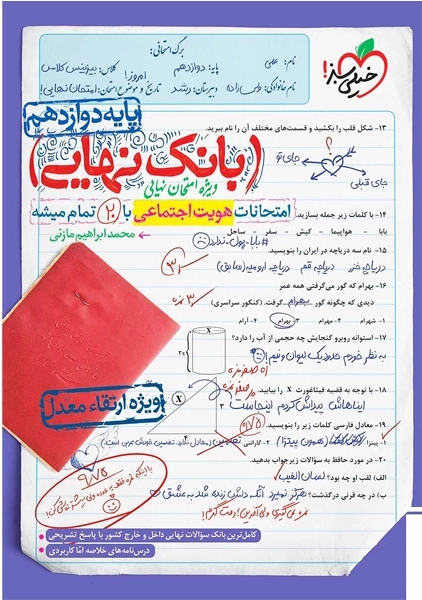 برگ امتحانی:
خیلی سبز!
نام: علی
پایه: دوازدهم
کلاس: بیزینس کلاس
امروز!
نام خانوادگی:
دبیرستان: رشد
تاریخ و موضوع امتحان: امتحان نهایی!
پایه دوازدهم
۱۳- شکل قلب را بکشید و قسمت‌های مختلف آن را نام ببرید.
جای تو
جای قبلی
بانک نهایی
ویژه امتحان نهایی
امتحانات هویت اجتماعی با ۲۰ تمام میشه
محمد ابراهیم مازنی
۱۴- با کلمات زیر جمله بسازید.
بابا - هواپیما - کیش - سفر - ساحل
#بابا-پول-ندارد
۱۵- نام سه دریاچه در ایران را بنویسید.
دریاچه خزر دریاچه قم دریاچه ارومیه (سابق)
۱۶- بهرام که گور می‌گرفتی همه عمر
دیدی که چگونه گور بهرام گرفت. (کنکور سراسری)
۱- شهرام ۲- مهرام ۳- بهرام ۴- آرام
۱۷- استوانه روبرو گنجایش چه حجمی از آب را دارد؟
به نظر خودم حدود یک لیوان و نیم!
X
۲X
۱۸- با توجه به قضیه فیثاغورث X را بیابید.
ایناهاش پیداش کردم اینجاست
X
۳
ویژه ارتقاء معدل
۱۹- معادل فارسی کلمات زیر را بنویسید.
۱- پیتزا (همون پیتزا) ۲- گارانتی تضمین
۲۰- در مورد حافظ به سؤالات زیر جواب بدهید.
الف) لقب او چه بود؟ لسان الغیب
ب) در چه قرنی درگذشت؟ هرگز نمیرد آنکه دلش زنده شد به عشق
۹/۷۵
کامل‌ترین بانک سؤالات نهایی داخل و خارج کشور با پاسخ تشریحی
درس‌نامه‌های خلاصه امّا کاربردی